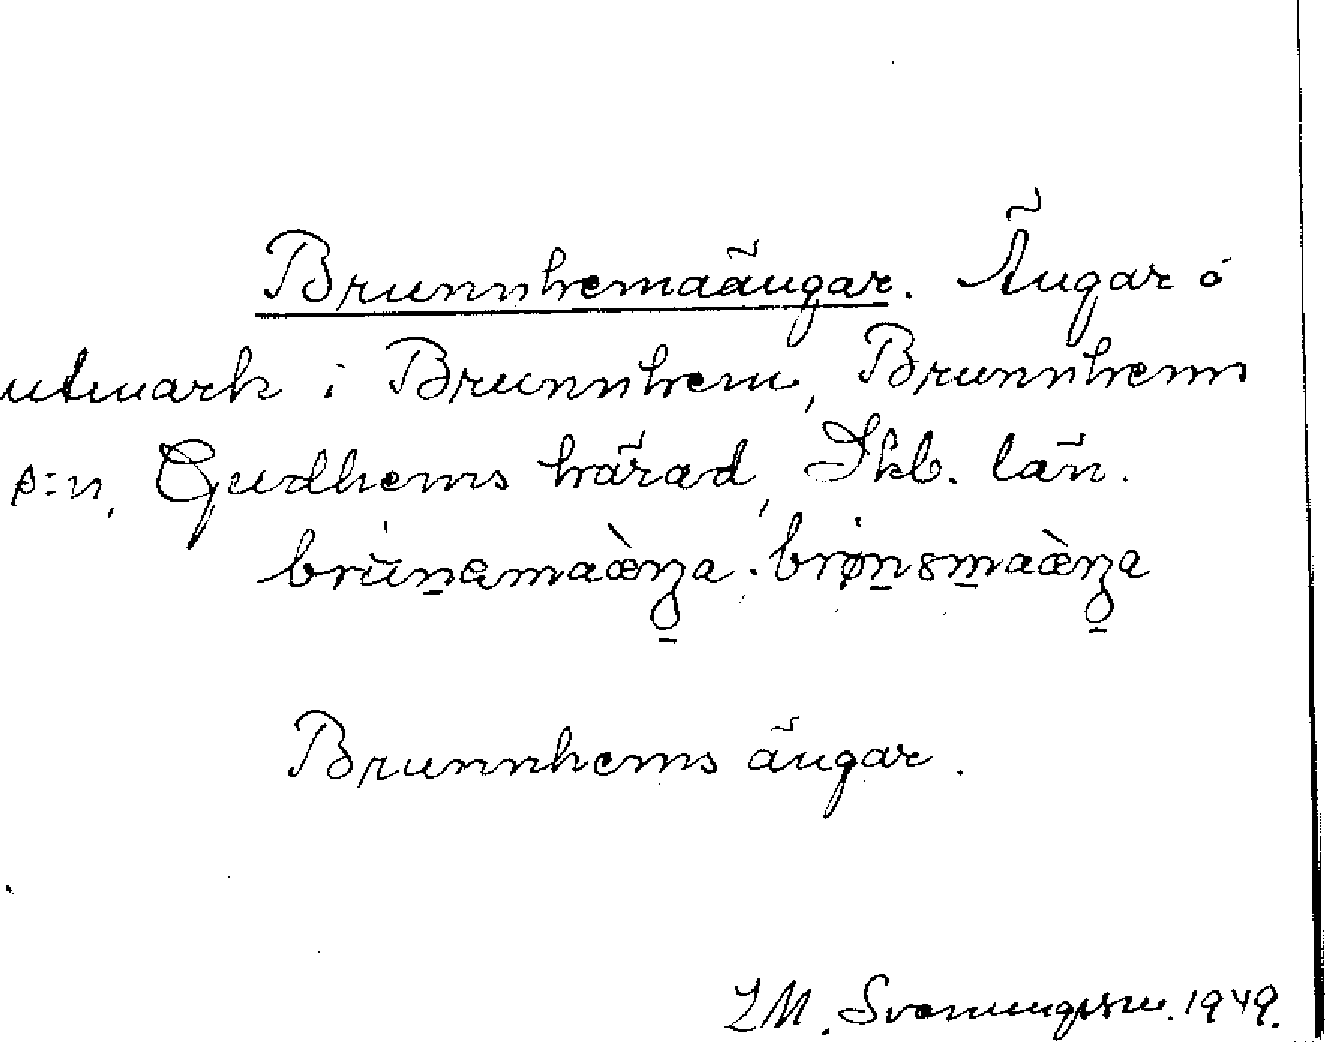 Brunnhemaängar. Ängar å
utmark i Brunnhem, Brunnhems
s:n, Gudhems härad, Skb. län.
Brunnhems ängar.
I.M. Svenungsson. 1949.